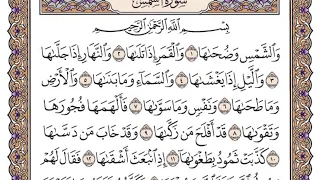 سورة الشمس
بِسْمِ اللَّهِ الرَّحْمَٰنِ الرَّحِيمِ
وَالشَّمْسِ وَضُحَىٰهَا ١ وَالْقَمَرِ إِذَا تَلَىٰهَا ٢ وَالنَّهَارِ إِذَا جَلَّىٰهَا
٣ وَاللَّيْلِ إِذَا يَغْشَىٰهَا ٤ وَالسَّمَاءِ وَمَا بَنَىٰهَا ٥ وَالْأَرْضِ
وَمَا طَحَىٰهَا ٦ وَنَفْسٍ وَمَا سَوَّىٰهَا ٧ فَأَلْهَمَهَا فُجُورَهَا
وَتَقْوَىٰهَا ٨ قَدْ أَفْلَحَ مَن زَكَّىٰهَا ٩ وَقَدْ خَابَ مَن دَسَّىٰهَا
١٠ كَذَّبَتْ ثَمُودُ بِطَغْوَىٰهَا ١١ إِذِ انبَعَثَ أَشْقَىٰهَا ١٢ فَقَالَ لَهُمْ